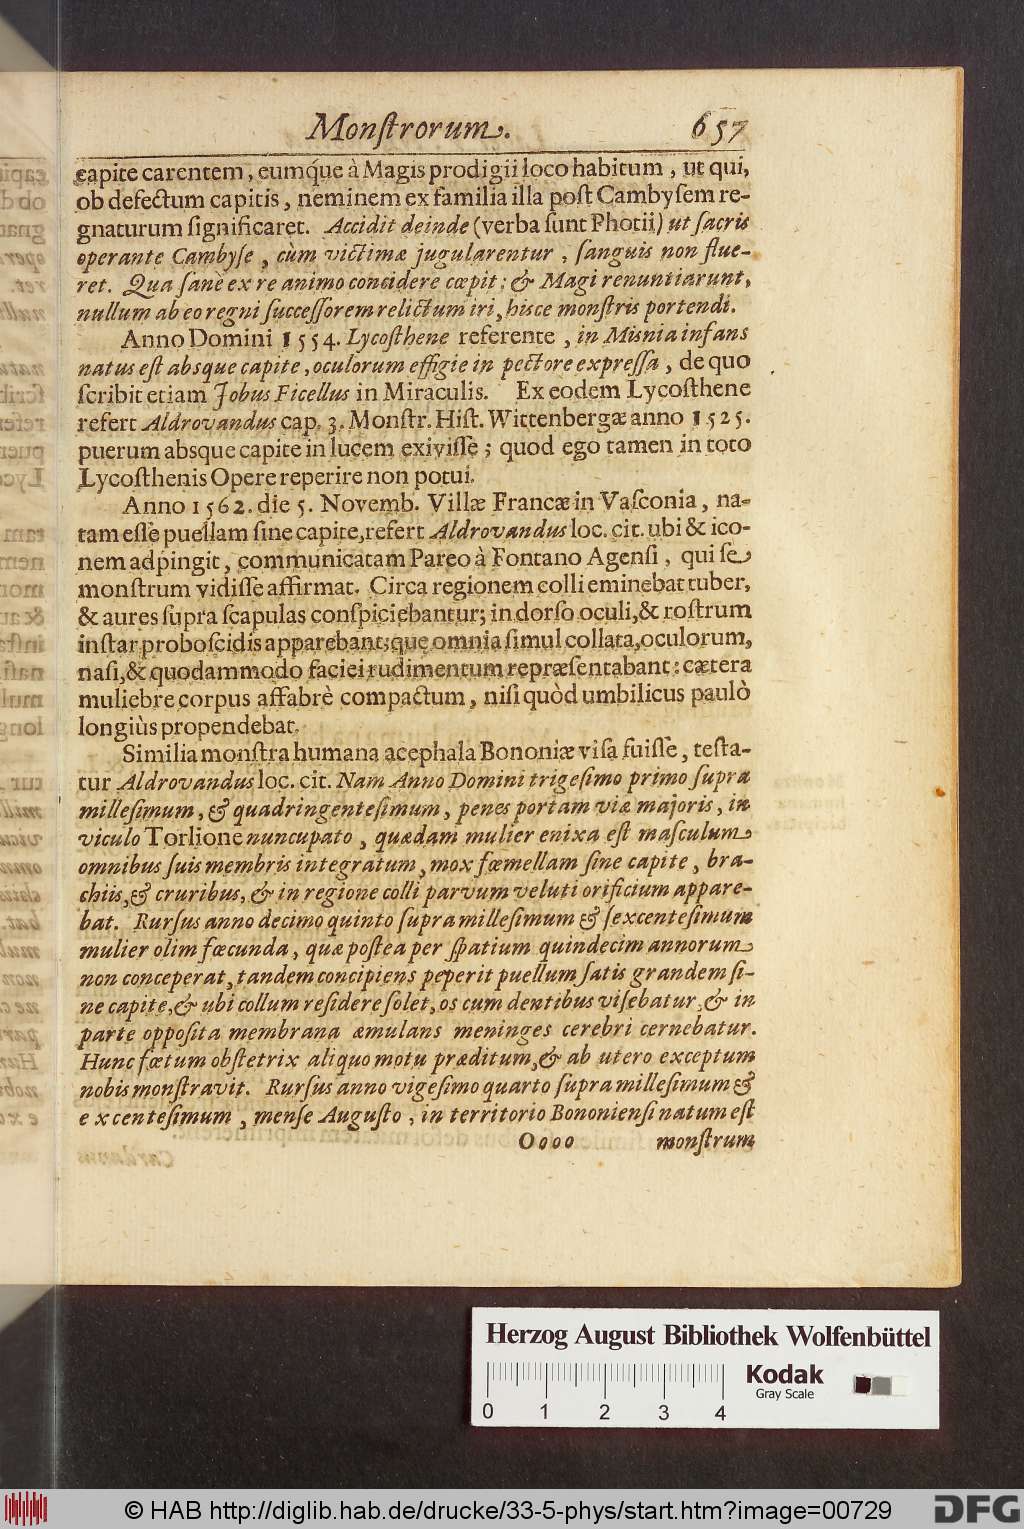 Monſtrorum. 657
capite carentem, eumq́ue à Magis prodigii loco habitum, ut qui,
ob defectum capitis, neminem ex familia illa poſt Cambyſem re-
gnaturum ſignificaret. Accidit deinde (verba ſunt Photii) ut ſacris
operante Cambyſe, cùm victimæ jugularentur, ſanguis non flue-
ret. Qua ſanè ex re animo concidere cœpit; & Magi renuntiarunt,
nullum ab eo regni ſucceſſorem relictum iri, hisce monſtris portendi.
Anno Domini 1554. Lycoſthene referente, in Misnia infans
natus eſt absque capite, oculorum effigie in pectore expreſſa, de quo
ſcribit etiam Jobus Ficellus in Miraculis. Ex eodem Lycoſthene
refert Aldrovandus cap. 3. Monſtr. Hiſt. Wittenbergæ anno 1525.
puerum absque capite in lucem exiviſſe; quod ego tamen in toto
Lycoſthenis Opere reperire non potui.
Anno 1562. die 5. Novemb. Villæ Francæ in Vaſconia, na-
tam eſſe puellam ſine capite, refert Aldrovandus loc. cit. ubi & ico-
nem adpingit, communicatam Pareo à Fontano Agenſi, qui ſe
monſtrum vidiſſe affirmat. Circa regionem colli eminebat tuber,
& aures ſupra ſcapulas conſpiciebantur; in dorſo oculi, & roſtrum
inſtar proboſcidis apparebant; quę omnia ſimul collata, oculorum,
naſi, & quodammodo faciei rudimentum repræſentabant: cætera
muliebre corpus affabrè compactum, niſi quòd umbilicus paulò
longiùs propendebat.
Similia monſtra humana acephala Bononiæ viſa fuiſſe, teſta-
tur Aldrovandus loc. cit. Nam Anno Domini trigeſimo primo ſupra
milleſimum, & quadringenteſimum, penes portam viæ majoris, in
viculo Torlione nuncupato, quædam mulier enixa eſt maſculum
omnibus ſuis membris integratum, mox fœmellam ſine capite, bra-
chiis, & cruribus, & in regione colli parvum veluti orificium appare-
bat. Rurſus anno decimo quinto ſupra milleſimum & ſexcenteſimum
mulier olim fœcunda, quæ poſtea per ſpatium quindecim annorum
non conceperat, tandem concipiens peperit puellum ſatis grandem ſi-
ne capite, & ubi collum reſidere ſolet, os cum dentibus viſebatur, & in
parte oppoſita membrana æmulans meninges cerebri cernebatur.
Hunc fœtum obſtetrix aliquo motu præditum, & ab utero exceptum
nobis monſtravit. Rurſus anno vigeſimo quarto ſupra milleſimum &
excenteſimum, menſe Auguſto, in territorio Bononienſi natum eſt
Oooo monſtrum
Herzog August Bibliothek Wolfenbüttel
Kodak
Gray Scale
0 1 2 3 4
© HAB http://diglib.hab.de/drucke/33-5-phys/start.htm?image=00729
DFG